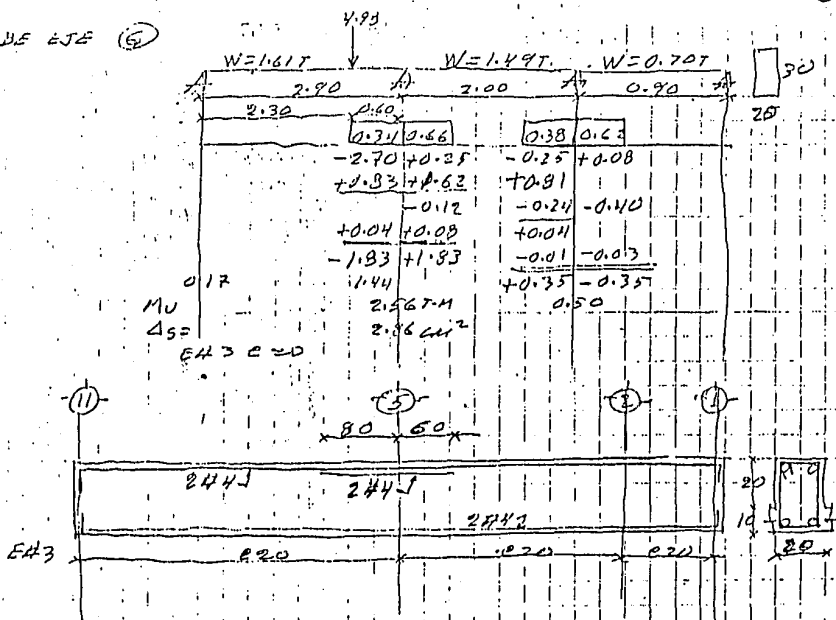 4.93
DE EJE (G)
W=1.61T W=1.49T. W=0.70T
2.90 2.00 0.90 30
2.30 0.60 25
0.34 0.66 0.38 0.62
-2.70 +0.25 -0.25 +0.08
+0.83 +1.62 +0.81
-0.12 -0.24 -0.40
+0.04 +0.08 +0.04
-1.83 +1.83 -0.01 -0.03
+0.35 -0.35
0.17 1.44 0.50
MU 2.56 T-M
ΔS= 2.86 CM²
E#3 C=D
11 5 2 1
80 60
2#4 2#4 20
2#4 10
E#3 @20 @20 @20 20